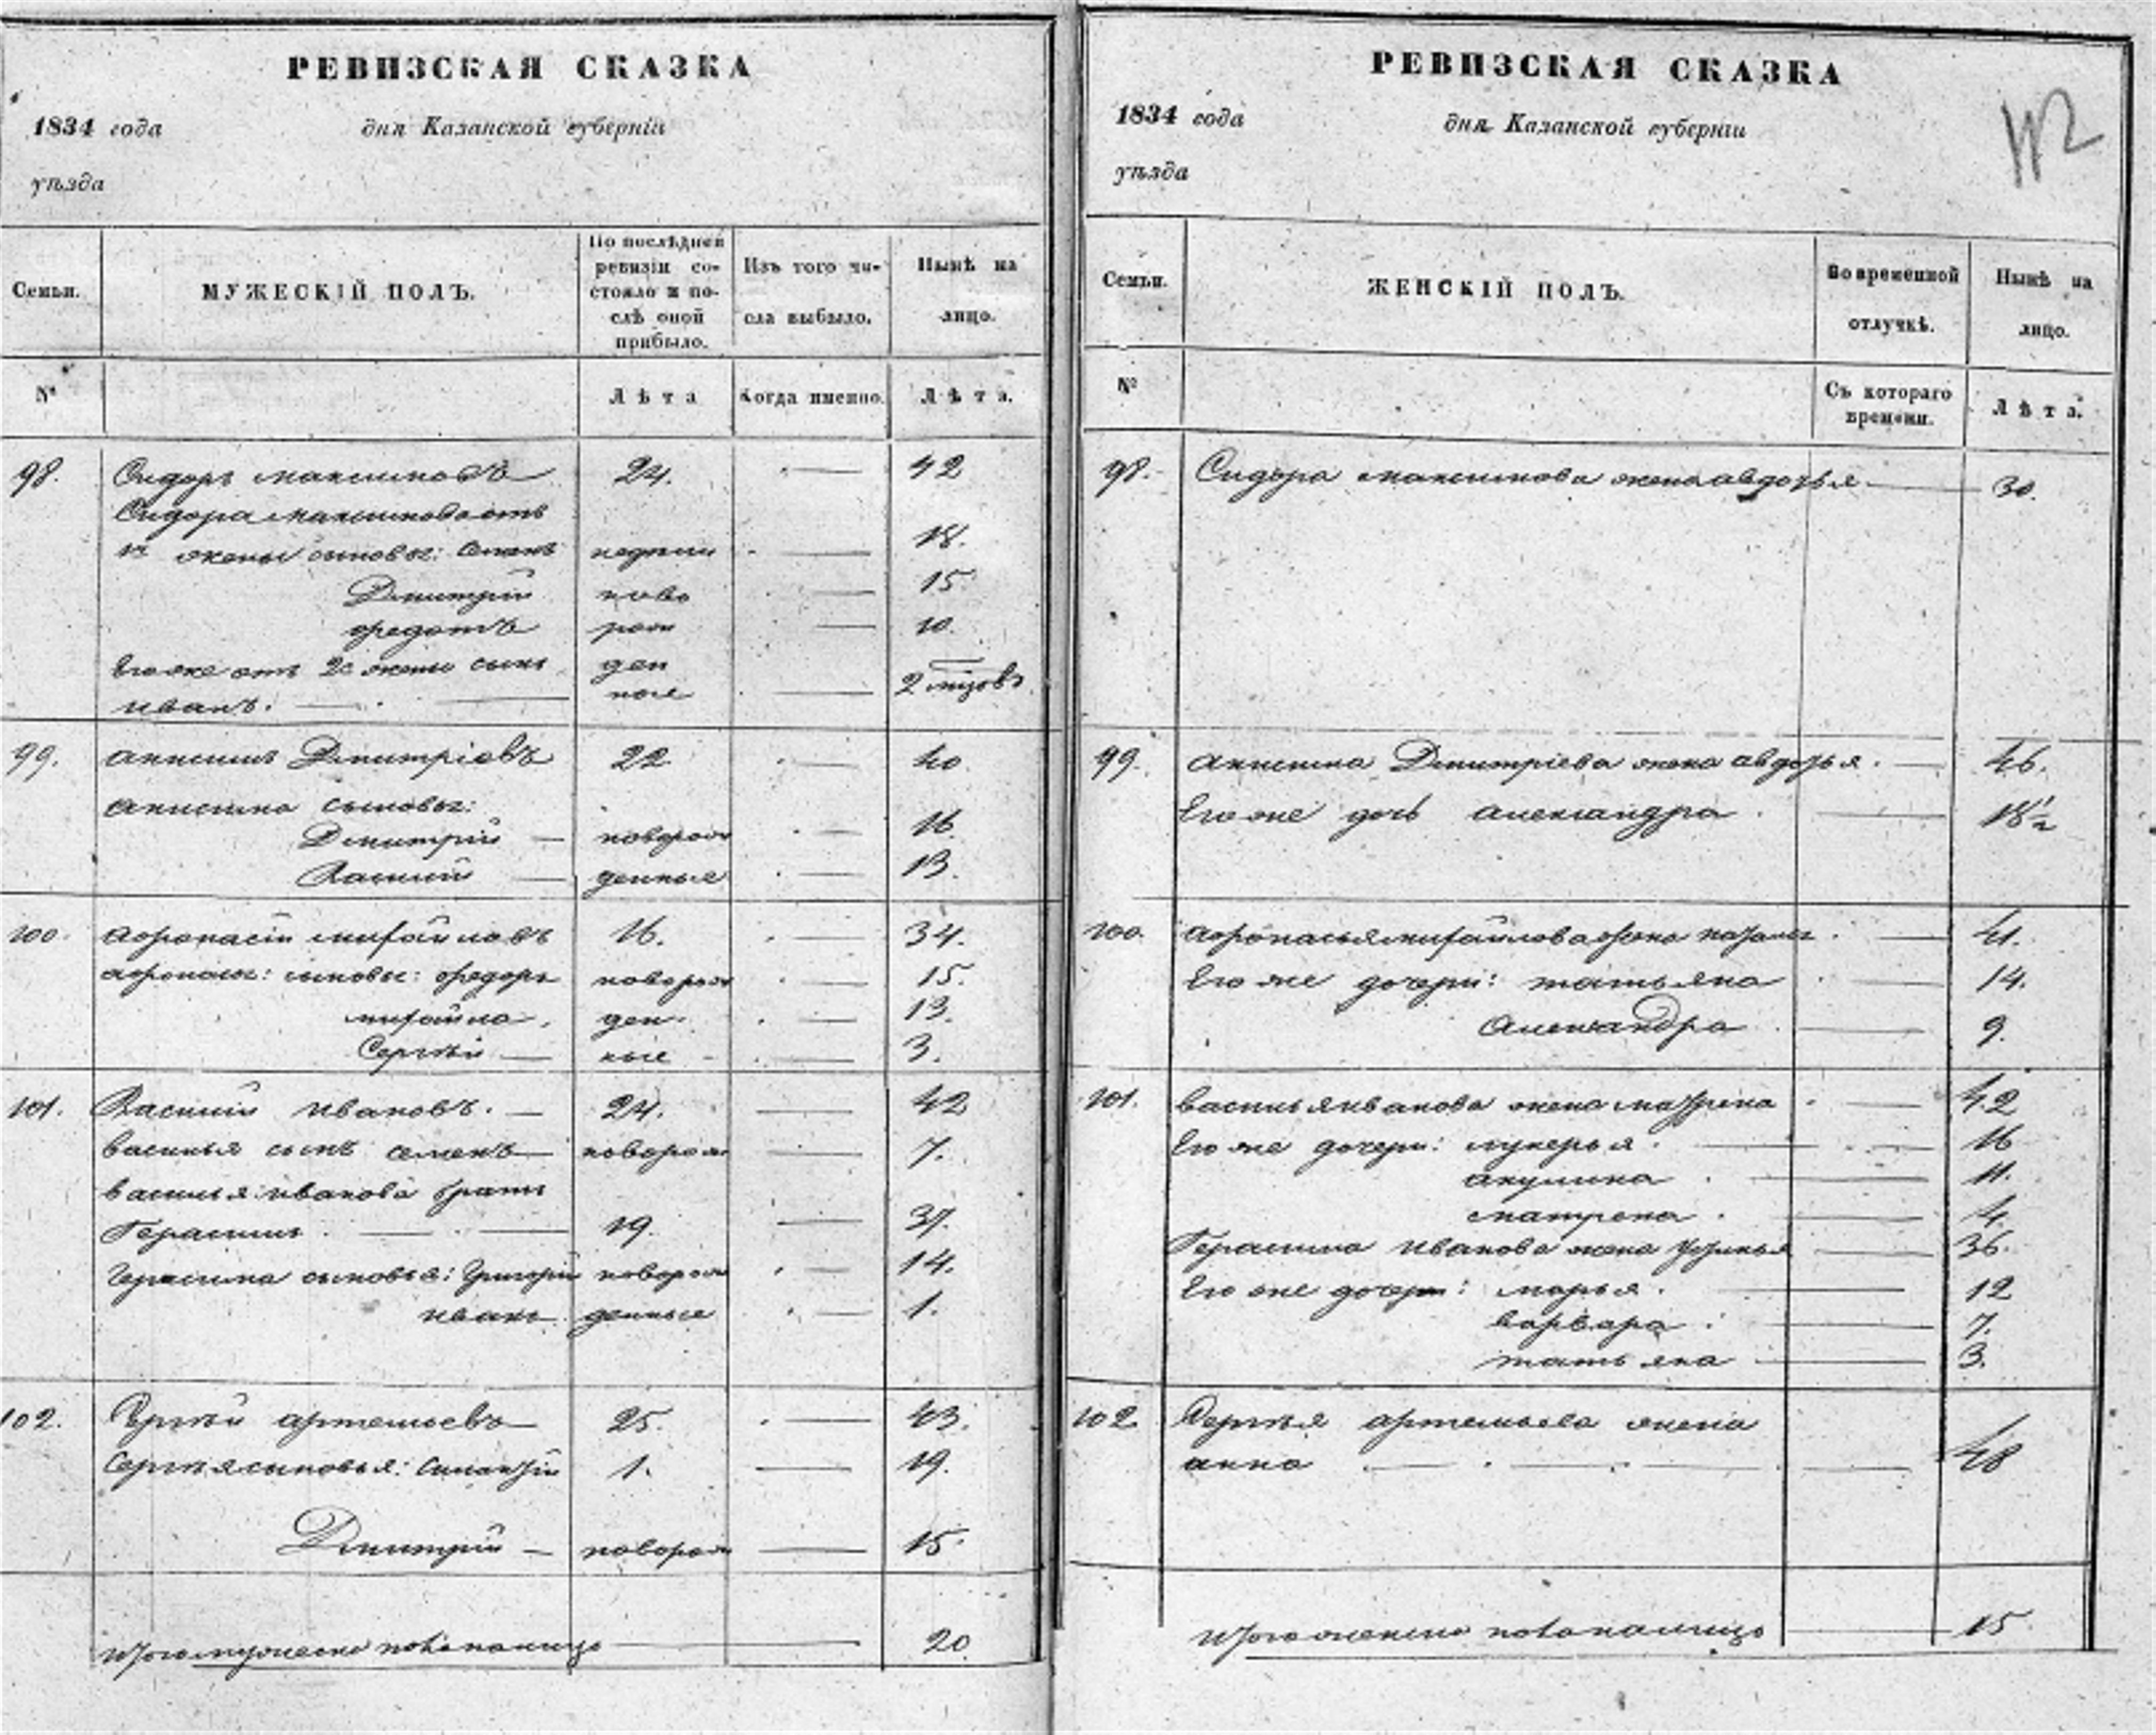 РЕВИЗСКАЯ СКАЗКА
1834 года дня Казанской губерніи
уѣзда
Семьи.
МУЖЕСКІЙ ПОЛЪ.
По послѣдней
ревизіи со-
стояло и по-
слѣ оной
прибыло.
Изъ того чи-
сла выбыло.
Нынѣ на
лицо.
№
Лѣта
Когда именно.
Лѣта.
98. Сидоръ максимовъ 24. 42
Сидора максимова отъ
1й жены сыновья: Семенъ недѣли 18.
Дмитрій ново 15.
Ѳедотъ рож 10.
Его же отъ 2й жены сынъ ден
иванъ. ные 2 мѣсяцовъ
99. анисимъ Дмитріевъ 22 40
анисима сыновья:
Дмитрій новорож 16.
Василій денные 13.
100. афонасій михайловъ 16. 34.
афонасья: сыновья: Ѳедоръ новорож 15.
михайла. ден 13.
Сергѣй ные 3.
101. Василій ивановъ. 24. 42
василья сынъ семенъ новорож 7.
василья иванова братъ
Герасимъ 19. 37.
Герасима сыновья: Григорій новорож 14.
иванъ денные 1.
102. Сергѣй артемьевъ 25. 43.
Сергѣя сыновья: 1. 19.
Дмитрій новорож 15.
Итого мужеска пола на лицо 20.
РЕВИЗСКАЯ СКАЗКА
112
1834 года дня Казанской губерніи
уѣзда
Семьи.
ЖЕНСКІЙ ПОЛЪ.
Во временной
отлучкѣ.
Нынѣ на
лицо.
№
Съ котораго
времени.
Лѣта.
98. Сидора максимова жена авдотья 30.
99. анисима Дмитріева жена авдотья. 46.
Его же дочь александра 18½
100. афонасья михайлова жена 41.
Его же дочери: татьяна 14.
Александра 9.
101. василья иванова жена 42
Его же дочери: лукерья. 16
акулина 11.
матрена. 4.
Герасима иванова жена 36.
Его же дочери: марья. 12
варвара: 7.
татьяна 3.
102 Сергѣя артемьева жена
анна 48
Итого женска пола на лицо 15.